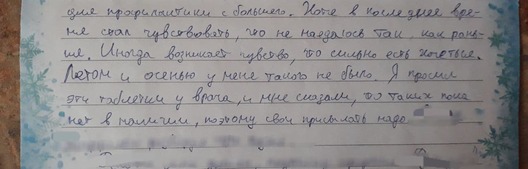 для профилактики с большего. Хотя в последнее вре-
мя стал чувствовать, что не наедалось так, как рань-
ше. Иногда возникает чувство, что сильно есть хочется.
Летом и осенью у меня такого не было. Я просил
эти таблетки у врача, и мне сказали, что таких пока
нет в наличии, поэтому свои присылать надо.